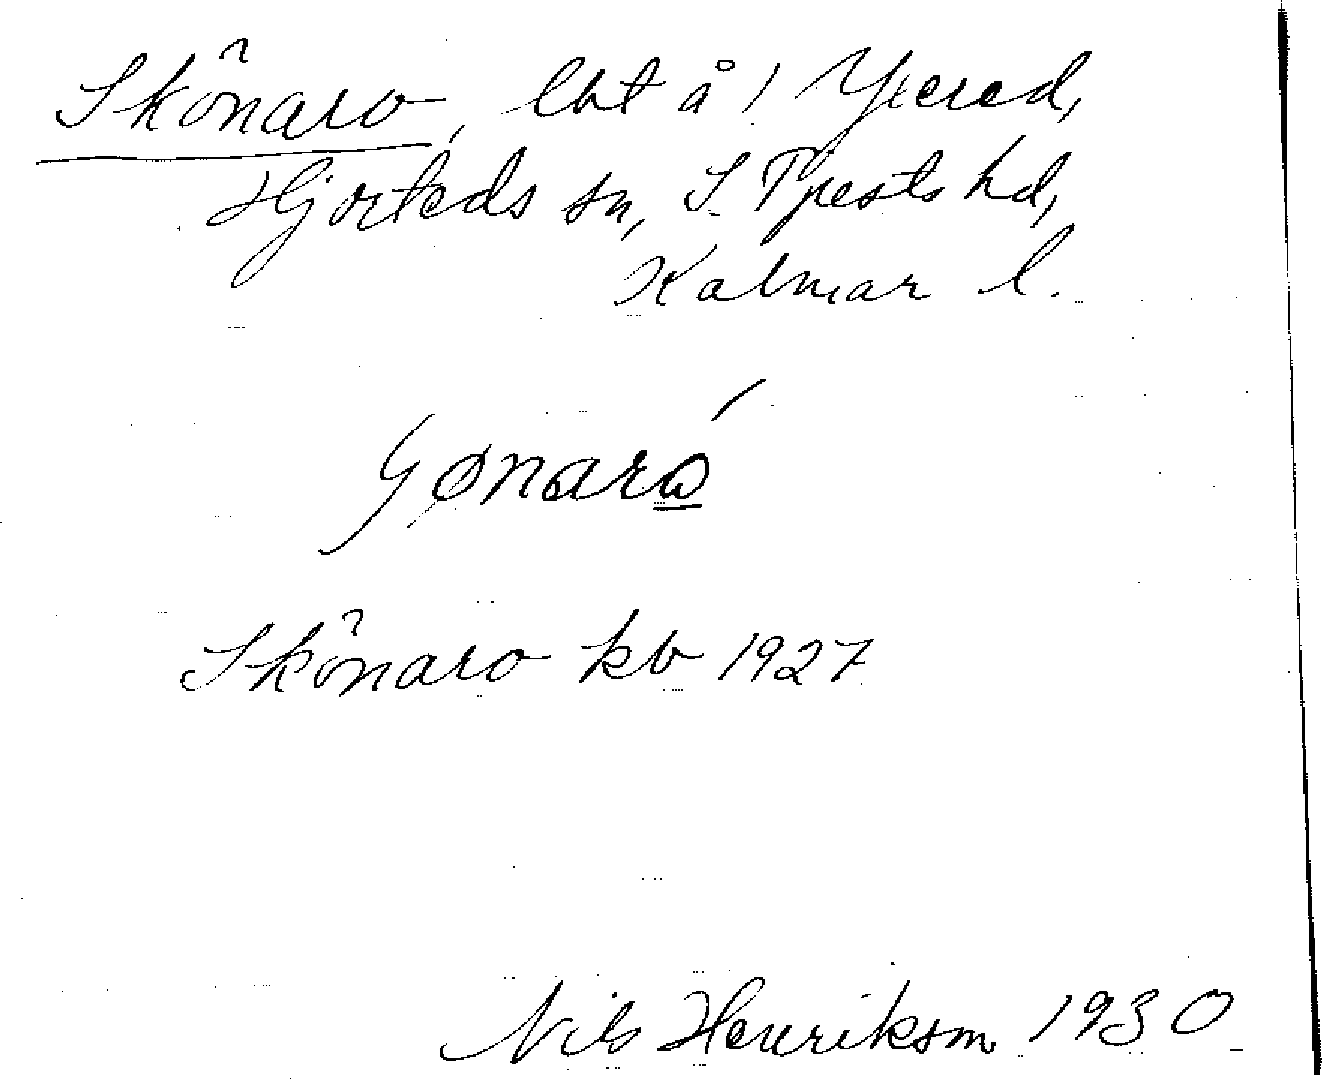 Skönaro, lht å! Ytered,
Hjorteds sn, S. Tjusts hd,
Kalmar l.
Skönaro kb 1927
Nils Henrikson 1930